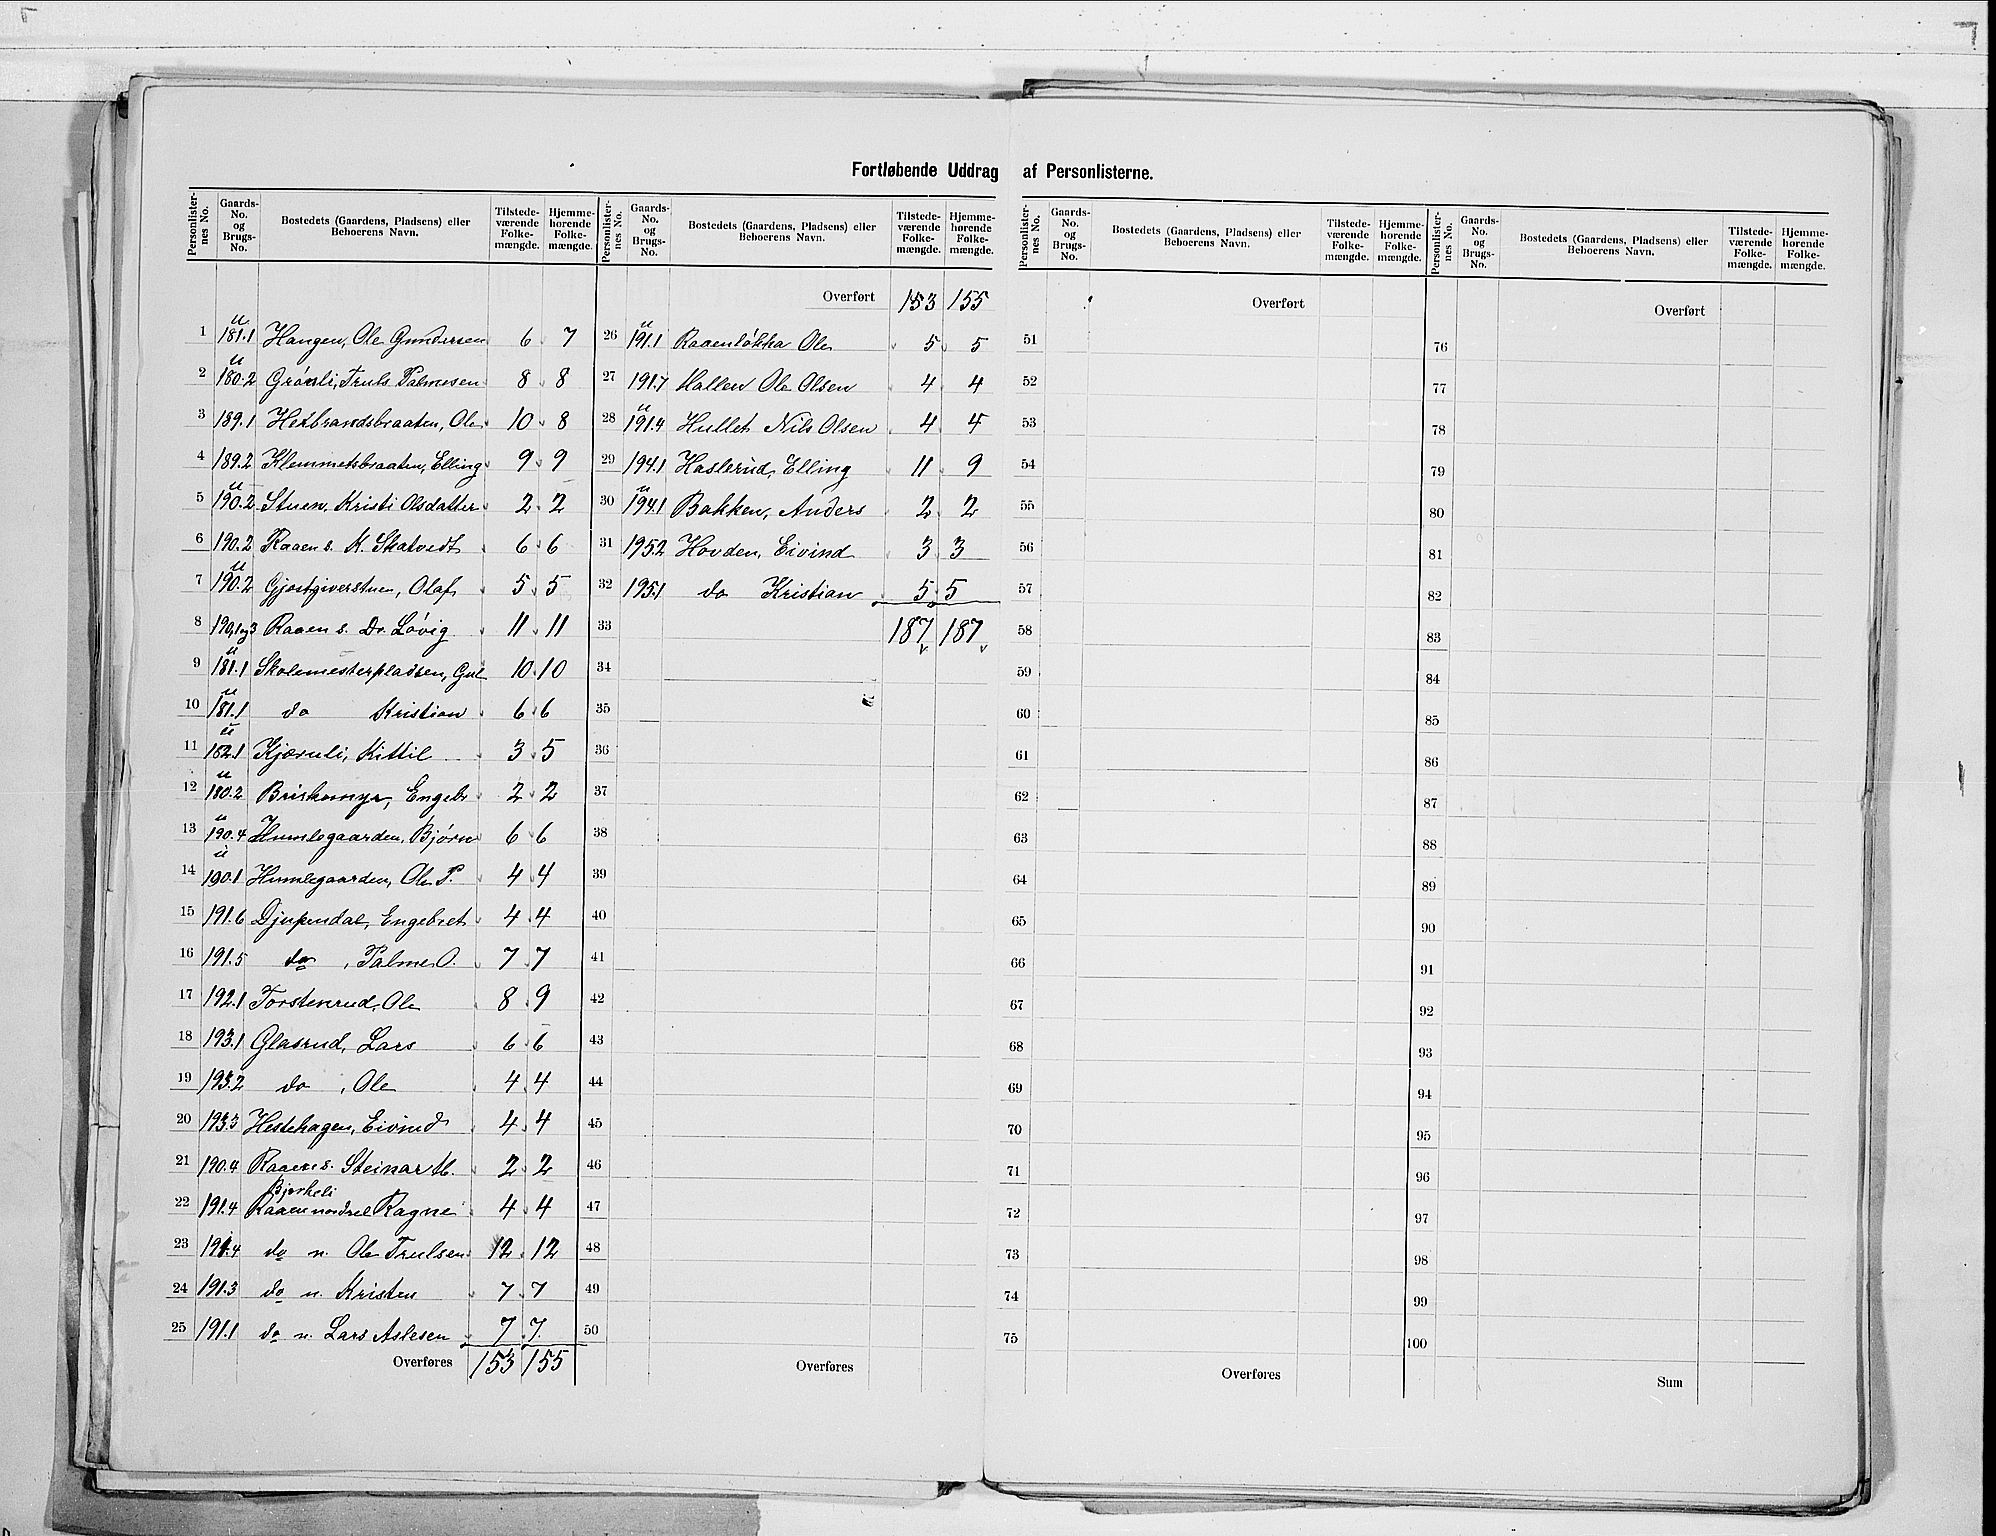 Fortløbende Uddrag af Personlisterne.
Personlister-nes No. Gaards-No. og Brugs-No. Bostedets (Gaardens, Pladsens) eller Beboerens Navn. Tilstede-værende Folke-mængde. Hjemme-hørende Folke-mængde.
1 u 181.1 Haugen, Ole Gundersen 6 7
2 u 180.2 Grønli, Truls Palmesen 8 8
3 189.1 Herbrandsbraaten, Ole 10 8
4 189.2 Klemmetsbraaten, Elling 9 9
5 u 190.2 Stuen, Kristi Olsdatter 2 2
6 190.2 Raaen s. K. Skatvedt 6 6
7 u 190.2 Gjestgiverstuen, Olaf 5 5
8 190,1og3 Raaen s. Dr. Løvig 11 11
9 u 181.1 Skolemesterpladsen, Gul 10 10
10 u 181.1 do Kristian 6 6
11 u 182.1 Kjærnli, Kittil 3 5
12 u 180.2 Briskemyr, Engebr 2 2
13 u 190.4 Humlegaarden, Bjørn 6 6
14 u 190.1 Humlegaarden, Ole P. 4 4
15 191.6 Djupendal, Engebret 4 4
16 191.5 do , Palme O. 7 7
17 192.1 Torstenrud, Ole 8 9
18 193.1 Glasrud, Lars 6 6
19 193.2 do , Ole 4 4
20 193.3 Hestehagen, Eivind 4 4
21 190.4 Raaen s. Steinar M. 2 2
Bjerkeli
22 191.4 Raaen nordrel Ragne 4 4
23 191.4 do n. Ole Trulsen 12 12
24 191.3 do n. Kristen 7 7
25 191.1 do n. Lars Aslesen 7 7
Overføres 153 155
Personlister-nes No. Gaards-No. og Brugs-No. Bostedets (Gaardens, Pladsens) eller Beboerens Navn. Tilstede-værende Folke-mængde. Hjemme-hørende Folke-mængde.
Overført 153 155
26 u 191.1 Raaenløkka Ole 5 5
27 191.7 Hallen Ole Olsen 4 4
28 u 191.4 Hullet Nils Olsen 4 4
29 194.1 Haslerud, Elling 11 9
30 u 194.1 Bakken, Anders 2 2
31 195.2 Hovden, Eivind 3 3
32 195.1 do Kristian 5 5
33 187 187
34
35
36
37
38
39
40
41
42
43
44
45
46
47
48
49
50
Overføres
Personlister-nes No. Gaards-No. og Brugs-No. Bostedets (Gaardens, Pladsens) eller Beboerens Navn. Tilstede-værende Folke-mængde. Hjemme-hørende Folke-mængde.
Overført
51
52
53
54
55
56
57
58
59
60
61
62
63
64
65
66
67
68
69
70
71
72
73
74
75
Overføres
Personlister-nes No. Gaards-No. og Brugs-No. Bostedets (Gaardens, Pladsens) eller Beboerens Navn. Tilstede-værende Folke-mængde. Hjemme-hørende Folke-mængde.
Overført
76
77
78
79
80
81
82
83
84
85
86
87
88
89
90
91
92
93
94
95
96
97
98
99
100
Sum